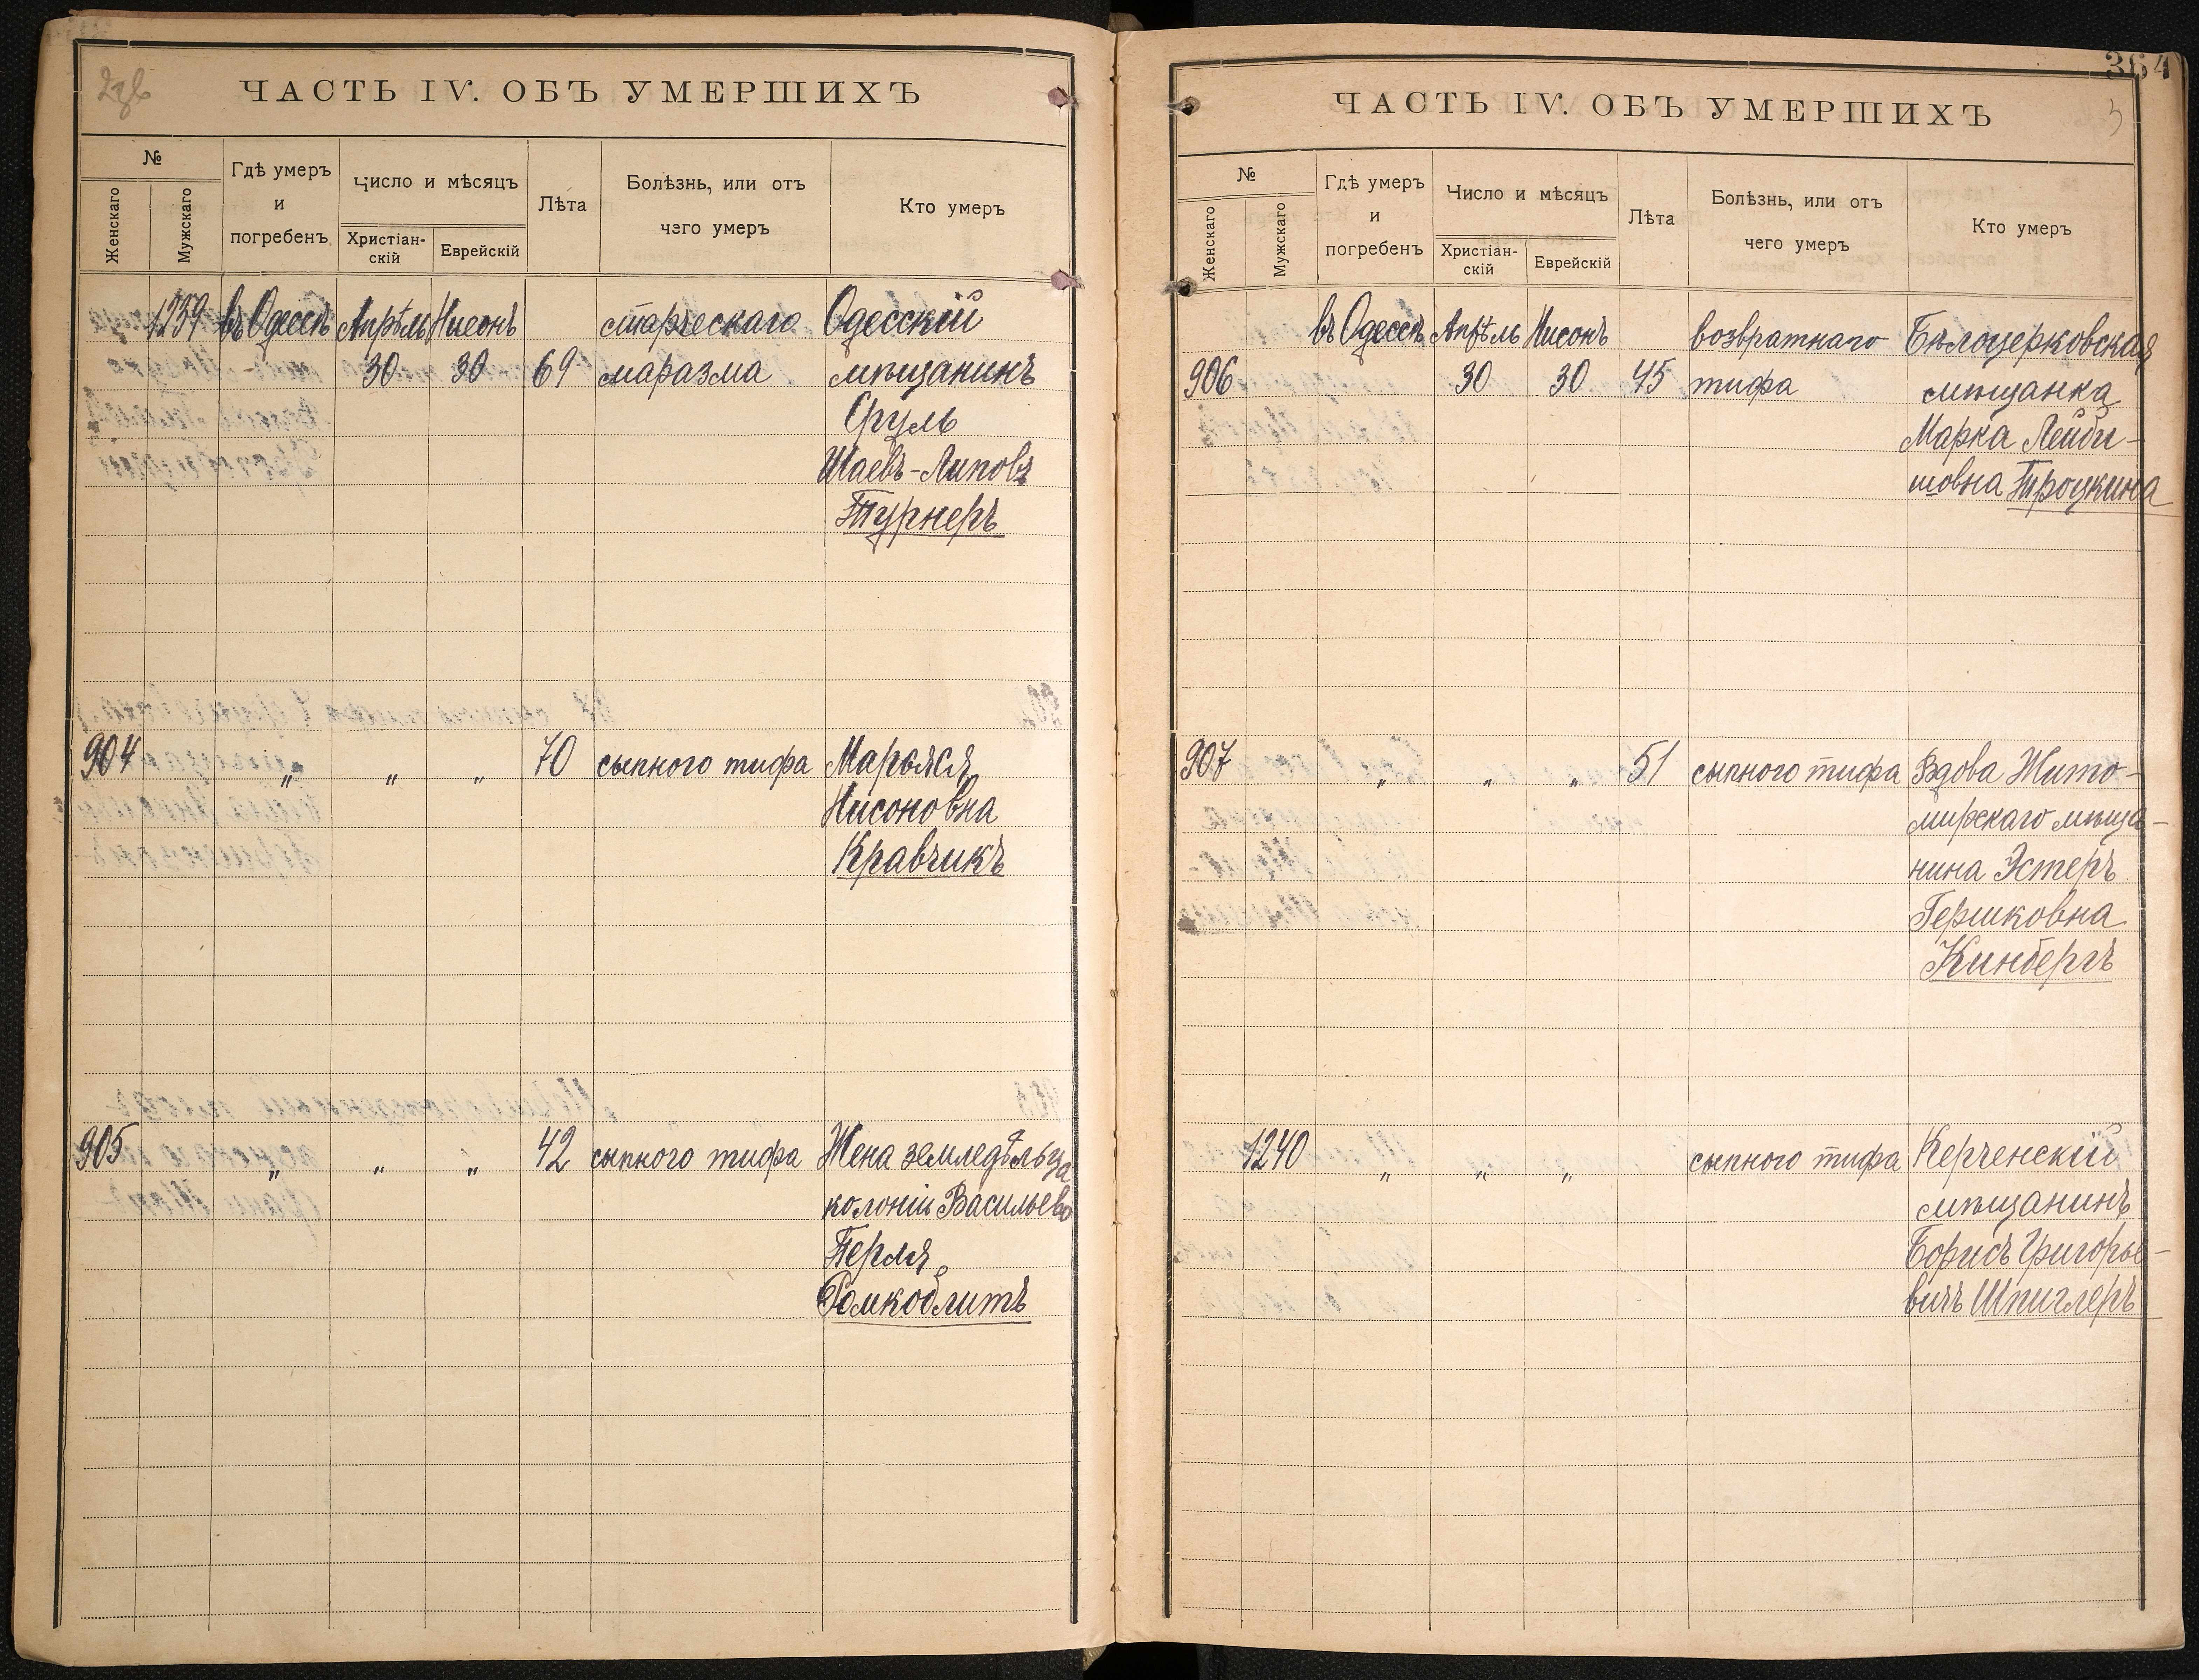 ЧАСТЬ IV. ОБЪ УМЕРШИХЪ
№
Женскаго
Мужскаго
Гдѣ умеръ
и
погребенъ
Число и мѣсяцъ
Христіан-
скій
Еврейскій
Лѣта
Болѣзнь, или отъ
чего умеръ
Кто умеръ
1239 въ Одессѣ Апрѣль Нисонъ старческаго Одесскій
30 30 69 маразма мѣщанинъ
Сруль
Шаевъ-Липовъ
Турнеръ
904 „ „ „ 70 сыпного тифа Марьяся
Нисоновна
Кравчикъ
905 „ „ „ 42 сыпного тифа Жена земледѣльца
колоніи Васильево
Перля
Ромкоблитъ
364
ЧАСТЬ IV. ОБЪ УМЕРШИХЪ
3
№
Женскаго
Мужскаго
Гдѣ умеръ
и
погребенъ
Число и мѣсяцъ
Христіан-
скій
Еврейскій
Лѣта
Болѣзнь, или отъ
чего умеръ
Кто умеръ
въ Одессѣ Апрѣль Нисонъ возвратнаго Бѣлоцерковская
906 30 30 45 тифа мѣщанка
Марка Лейби-
шовна Троцкина
907 „ „ „ 51 сыпного тифа Вдова Жито-
мирскаго мѣща-
нина Эстеръ
Гершковна
Кинбергъ
1240 „ „ „ сыпного тифа Керченскій
мѣщанинъ
Борисъ Григорье-
вичъ Шпиглеръ